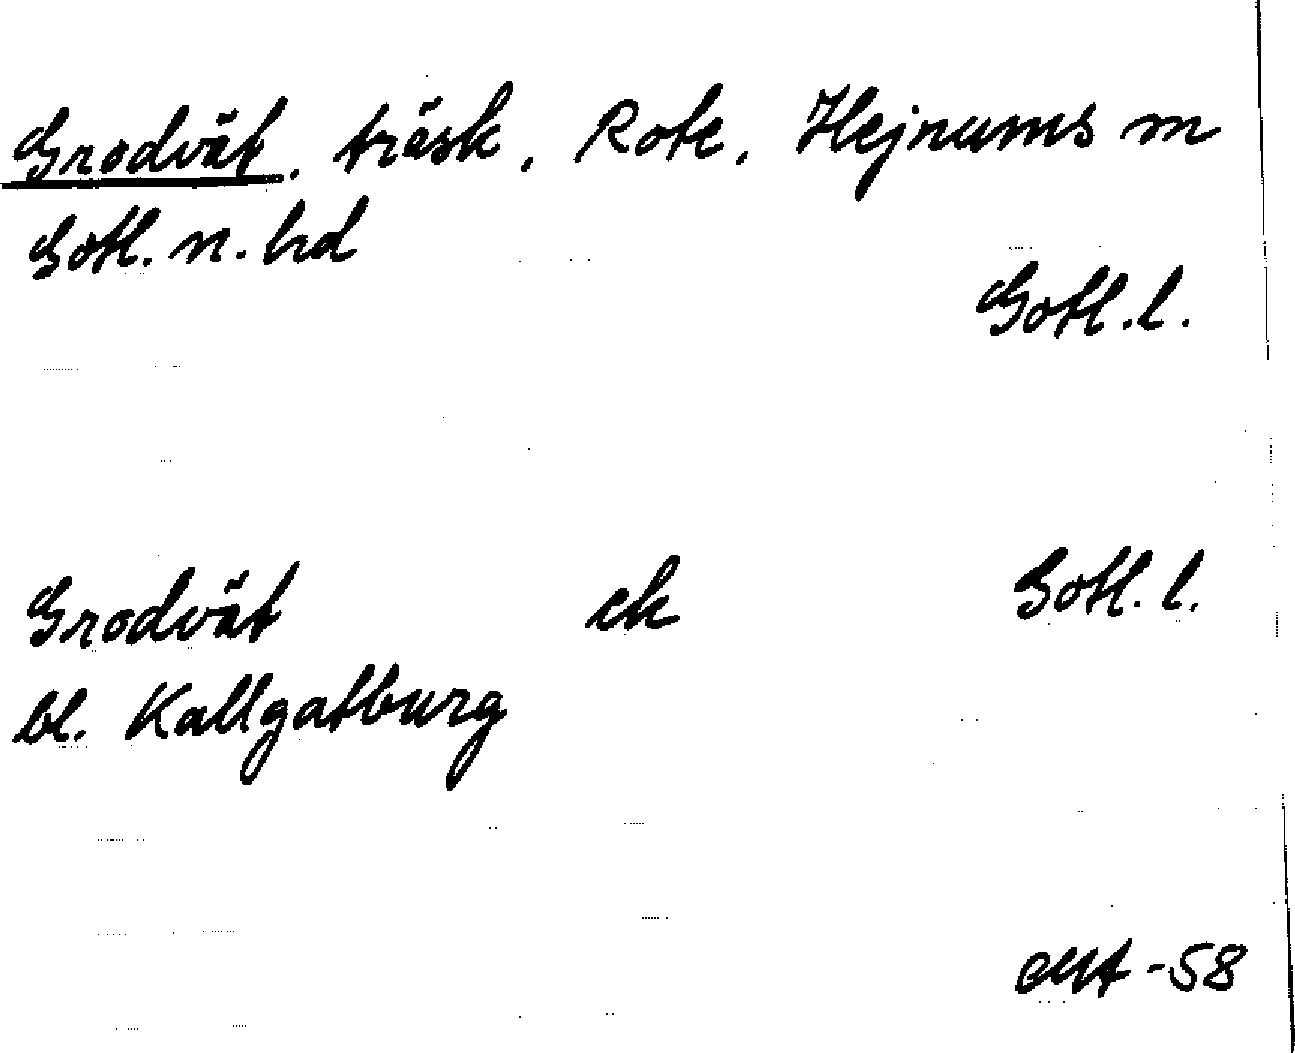 Grodvät, träsk, Rote, Hejnums sn
Gotl. n. hd
Gotl. l.
Grodvät ek Gotl. l.
bl. Kallgatburg
-58